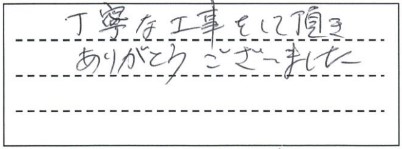 丁寧な工事をして頂き
ありがとうございました